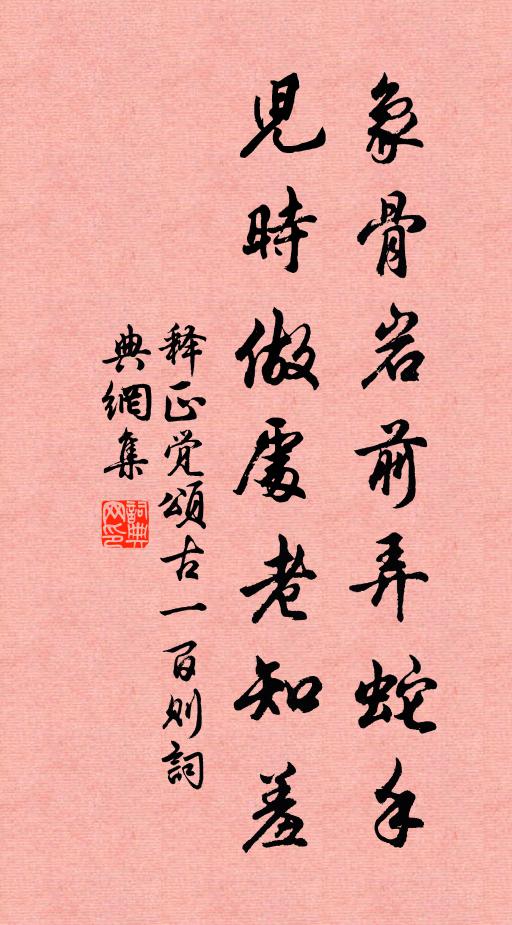 象骨岩前弄蛇手
児時做處老知羞
释正觉頌古一百则詞
典網集
詞典
网印